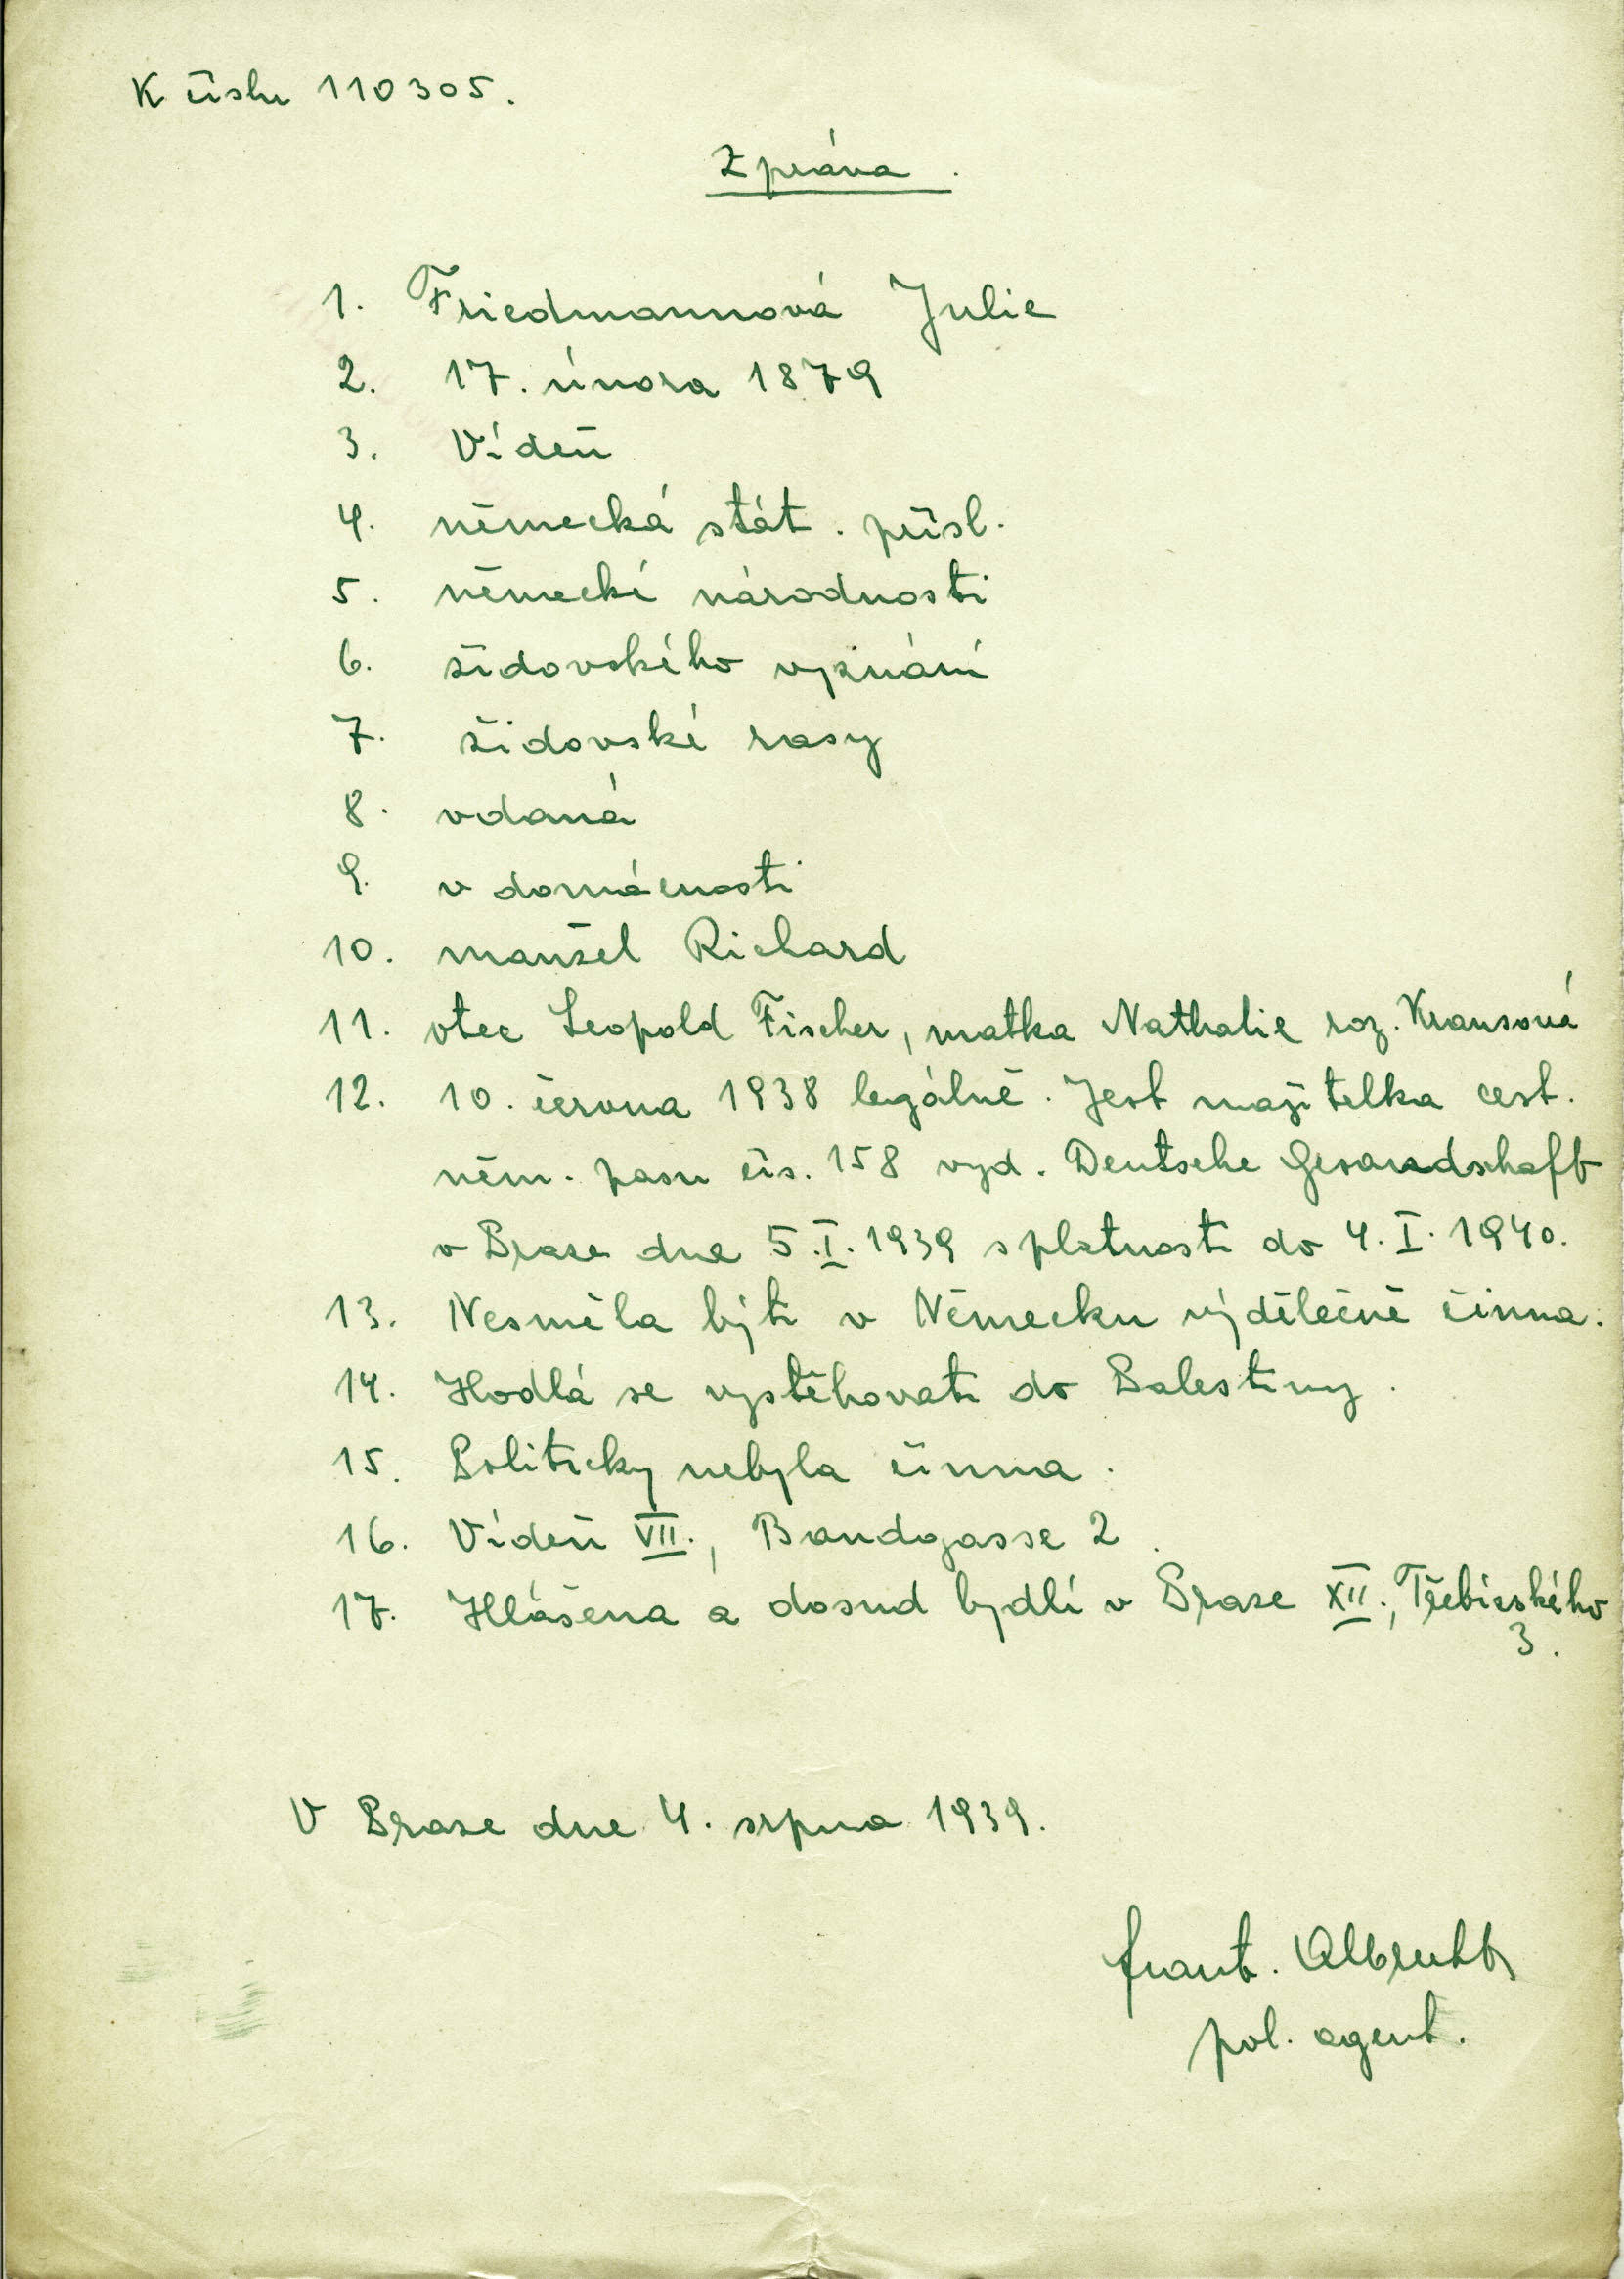 K číslu 110305.
Zpráva.
1. Friedmannová Julie
2. 17. února 1879
3. Vídeň
4. německá stát. přísl.
5. německé národnosti
6. židovského vyznání
7. židovské rasy
8. vdaná
9. v domácnosti
10. manžel Richard
11. otec Leopold Fischer, matka Nathalie roz. Krausová
12. 10. června 1938 legálně. Jest majitelka cest.
něm. pasu čís. 158 vyd. Deutsche Gesandschaft
v Praze dne 5.I.1939 s platností do 4.I.1940.
13. Nesměla býti v Německu výdělečně činna.
14. Hodlá se vystěhovati do Palestiny.
15. Politicky nebyla činna.
16. Vídeň VII., Bandgasse 2.
17. Hlášena a dosud bydlí v Praze XII., Třebízského
3.
V Praze dne 4. srpna 1939.
Frant. Albrecht
pol. agent.